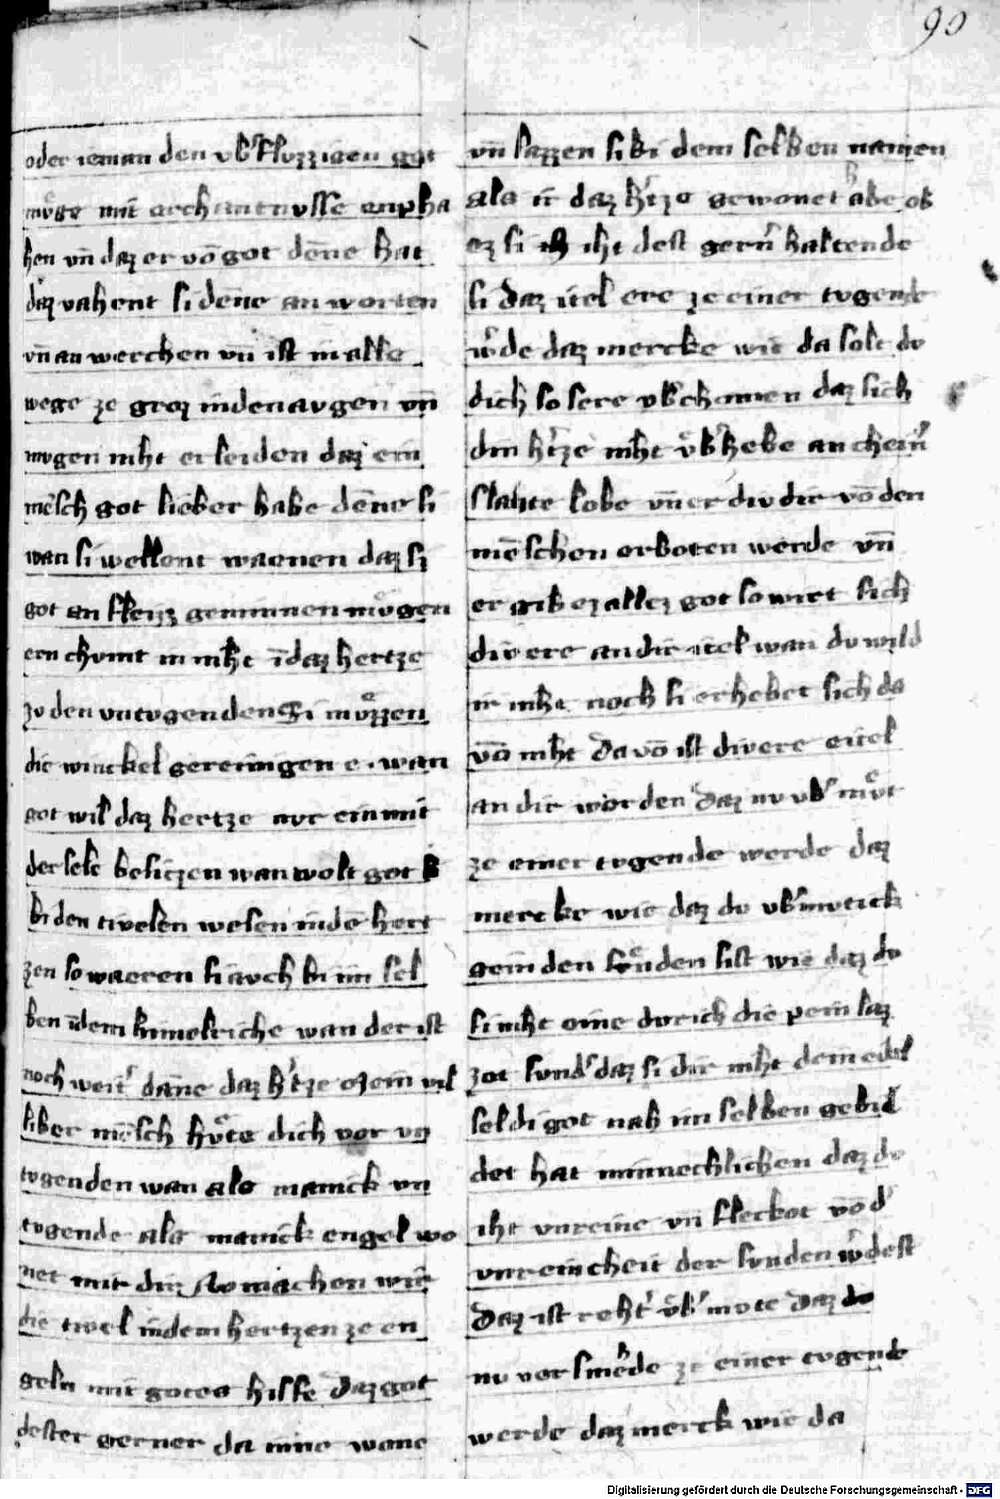 90
oder ieman den vb̾flvzzigen got
mvͦge mit erchantnvsse enpha
hen vn̄ daz er vō got dēne hat
daz vahent si dēne an worten
vn̄ an werchen vn̄ ist in alle
wege ze groz in den avgen vn̄
mvgen niht erleiden daz ein
mēsch got lieber habe dēne si
wan si wellent waenen daz si
got an fleizz geminnen mvͦgen
ern chvmt in niht īdaz hertze
zv den vntvgenden si mvͤzzen
die winckel gereimgen e . wan
got wil daz hertze nvr ein mit
der sele besiczen wan wolt got
bi den tivelen wesen in dē hert
zen so waeren si avch bi im sel
ben īdem himelriche wan der ist
noch weit̾ dāne daz h̾tze ezem vil
liber mēsch hvͤte dich vor vn
tvgenden wan als manick vn
tvgende als manick engel wo
net mit dir
machen wir
die tivel in dem hertzen ze en
geln mit gotes hilfe daz got
dester gerner da inne wone
vn̄ lazzen si bi dem selben namen
als ir daz h̾tze gewonet habe ob
ez si iht dest gern̾ haltende
si daz itel ere ze einer tvgende
w̾de daz mercke wie da solt dv
dich so sere vb̾chomen daz sich
din h̾tze niht vb̾hebe an cheim̾
slahte lobe vn̄ er div dir vō den
mēschen erboten werde vn̄
er gib ez allez got so wirt sich
div ere an dir itel wan dv wild
ir niht noch si erhebet sich da
vō niht da vō ist div ere eitel
an dir worden daz nv vb̾mvͦt
ze einer tvgende werde daz
mercke wie daz dv vb̾mvtick
gein den svnden sist wie daz dv
si niht eine dvrich die pein laz
zot svnd̾ daz si dir niht dein edel
sel di got nah im selben gebil
det hat minnechlichen daz dv
iht vnreine vn̄ fleckot vō d̾
vnreincheit der svnden w̾dest
daz ist reht̾ vb̾mvte daz dv
nv vor smehde ze einer tvgende
werde daz merck wie da
Digitalisierung gefördert durch die Deutsche Forschungsgemeinschaft - DFG